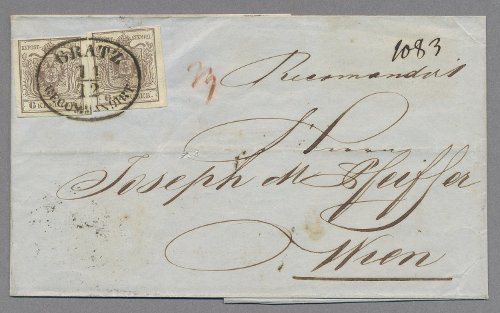 GRATZ
11
12
RECOMMANDIRT
6 KREUZER
1083
Recomandirt
Herrn
Joseph M. Pfeiffer
Wien